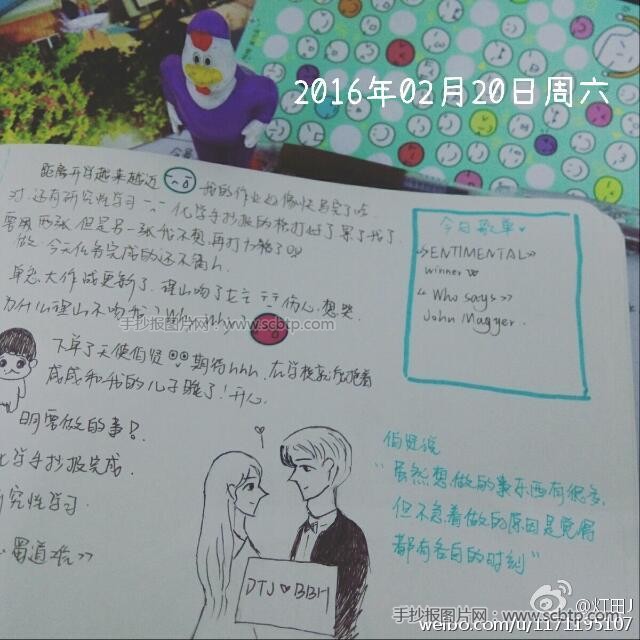 2016年02月20日周六
距离开学越来越近 我的作业也像快写完了哇
对,还有研究性学习 化学手抄报的格打好了累了我了
需要两张但是另一张我不想再打方格了
做 今天任务完成的还不满
单恋大作战更新了
为什么 不吻我? Why why
下单了天使伯贤 期待hhh.
成成和我的儿子睡了!开心
明要做的事!
化学手抄报完成.
研究性学习.
《蜀道难》
今日歌单
《SENTIMENTAL》
winner
《Who says》
John Mayyer.
伯贤说
“虽然想做的事东西有很多,
但不急着做的原因是觉得
都有各自的时刻”
DTJ BBH
手抄报图片网:www.scbtp.com
手抄报图片网:www.scbtp.com
@灯田J
weibo.com/u/1171195107